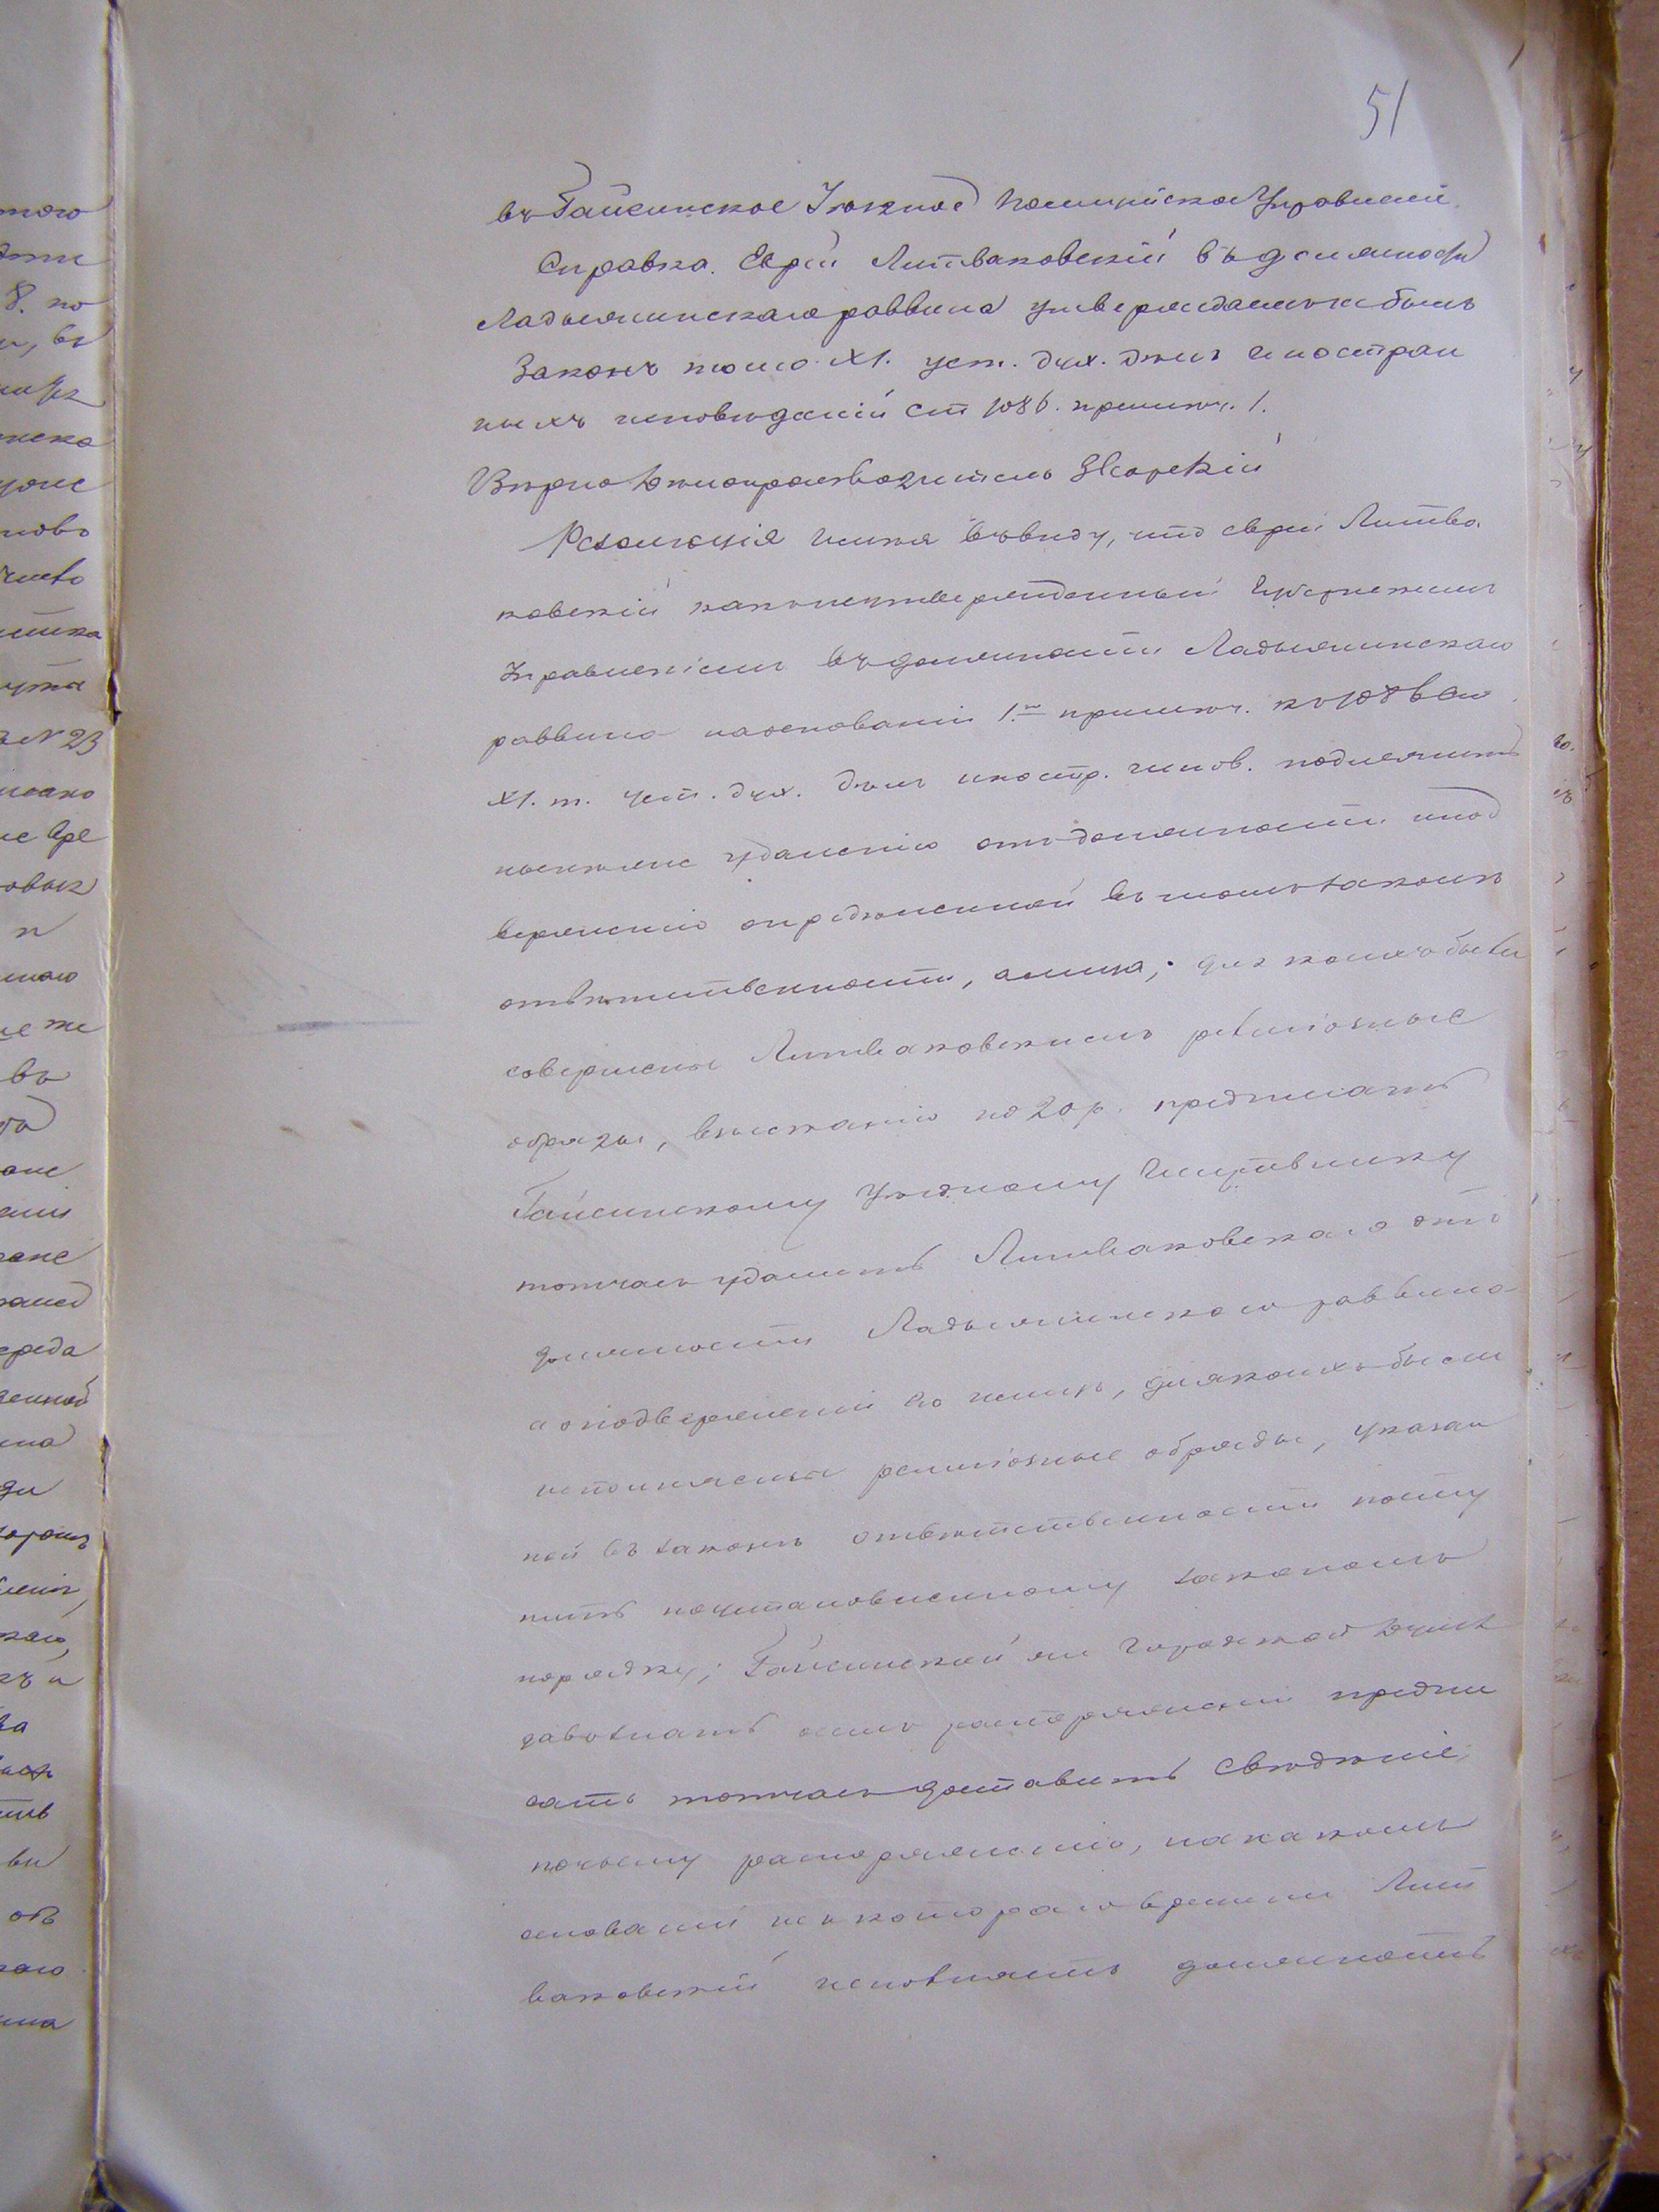 51
въ Гайсинское Уѣздное Полицейское Управленіе.
Справка. Еврей Литваковскій въ должности
Ладыжинскаго раввина утверждаемъ не былъ
Законъ томъ XI. уст. дух. дѣлъ иностран
ныхъ исповѣданій ст 1086. примѣч. 1.
Вѣрно Дѣлопроизводитель
Резолюція Имѣя въ виду, что еврей Литва
ковскій какъ неутвержденный Губернскимъ
Правленіемъ въ должности Ладыжинскаго
раввина на основаніи 1.го примѣч. къ 1086 ст
XI. т. уст. дух. дѣлъ иностр. испов. подлежитъ
удаленію отъ должности и под
верженію опредѣленной въ томъ законѣ
отвѣтственности, а лица, для коихъ были
совершены Литваковскимъ религіозные
обряды, взысканію по 20 р. предписать
Гайсинскому Уѣздному Исправнику
тотчасъ удалить Литваковскаго отъ
должности Ладыжинскаго раввина
а о подверженіи его и лицъ, для коихъ были
исполняемы религіозные обряды, указан
ной въ законѣ отвѣтственности посту
пить по установленному закономъ
порядку; Гайсинской же Городской Думѣ
давъ знать о семъ распоряженіи предпи
сать тотчасъ доставить свѣдѣніе,
по чьему распоряженію, на какомъ
основаніи и съ котораго времени Лит
ваковскій исполняетъ должность